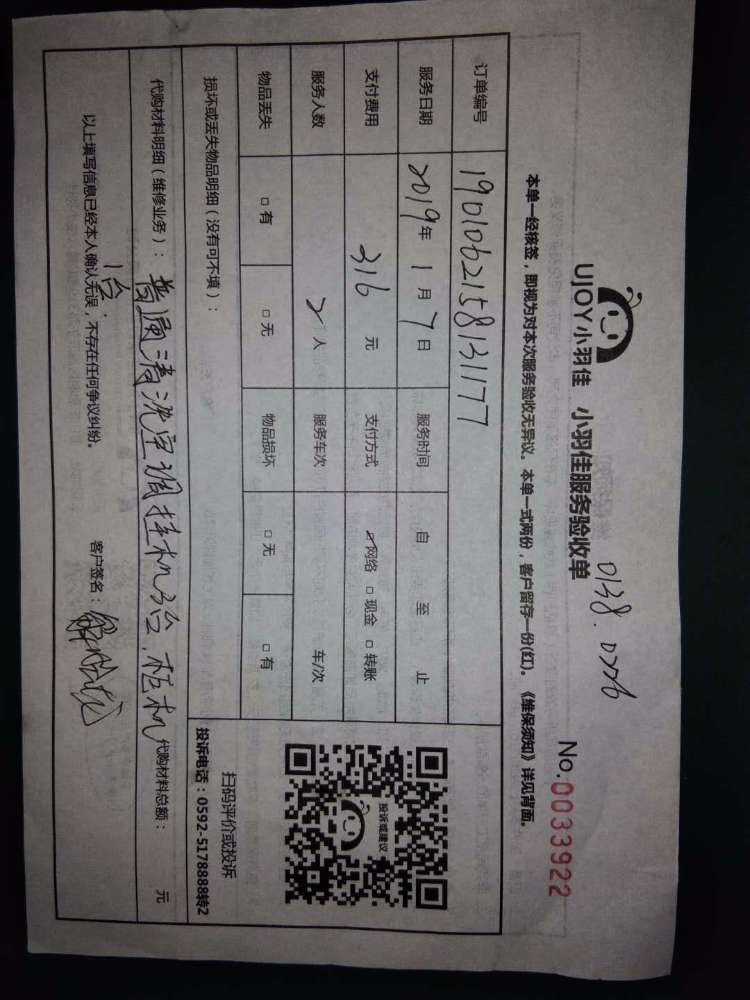 UJOY小羽佳 小羽佳服务验收单
0138. 0226
No.0033922
本单一经核签，即视为对本次服务验收无异议。本单一式两份，客户留存一份(红)。《维保须知》详见背面。
订单编号 190106215813177
服务日期 2019年1月7日 服务时间 自 至 止
支付费用 316 元 支付方式 ☑网络 □现金 □转账
服务人数 2人 服务车次 车/次
物品丢失 □有 □无 物品损坏 □无 □有
投诉或建议
扫码评价或投诉
投诉电话：0592-5178888转2
损坏或丢失物品明细（没有可不填）：
代购材料明细（维修业务）：普通清洗空调挂机3台，柜机
1台.
代购材料总额： 元
以上填写信息已经本人确认无误，不存在任何争议纠纷。
客户签名：